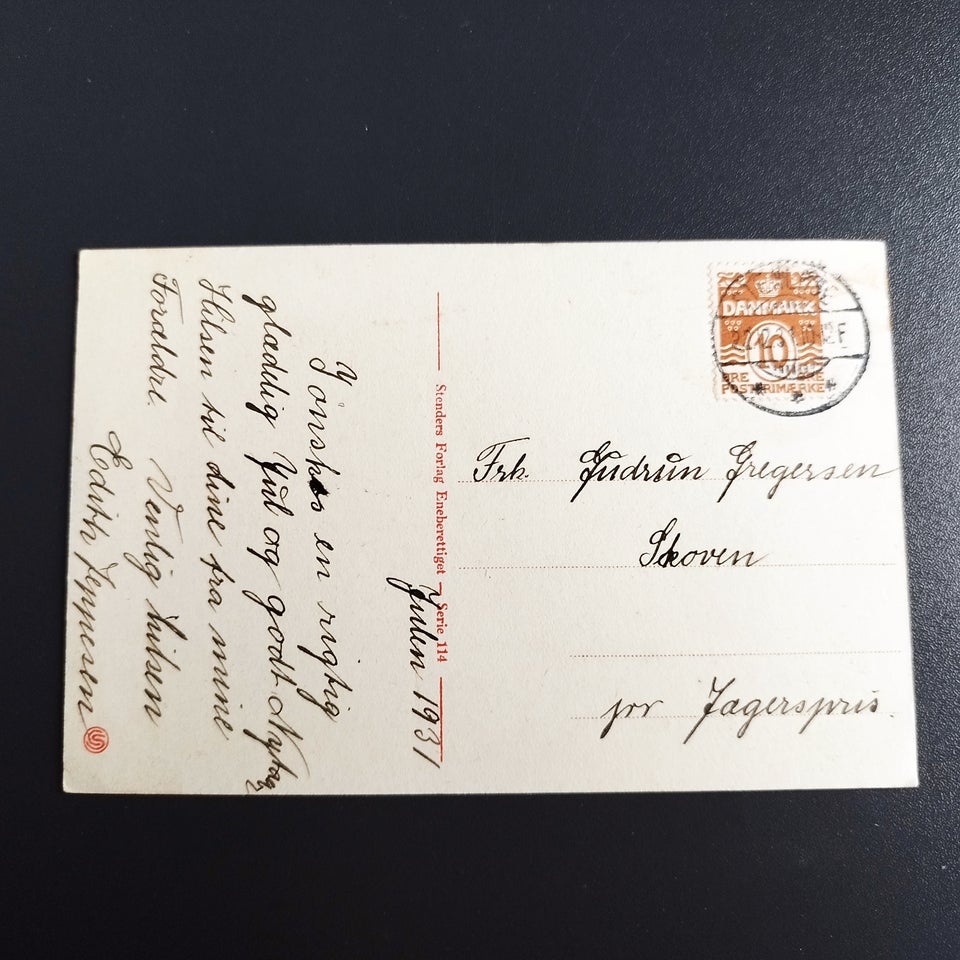 Julen 1931
I ønskes en rigtig
glædelig Jul og godt Nytaar
Hilsen til dine fra mine
Forældre. Venlig hilsen
Edith Jeppesen
Stenders Forlag Eneberettiget – Serie 114
DANMARK
10
ØRE
POSTFRIMÆRKE
Frk. Gudrun Gregersen
Skoven
pr Jægerspris.